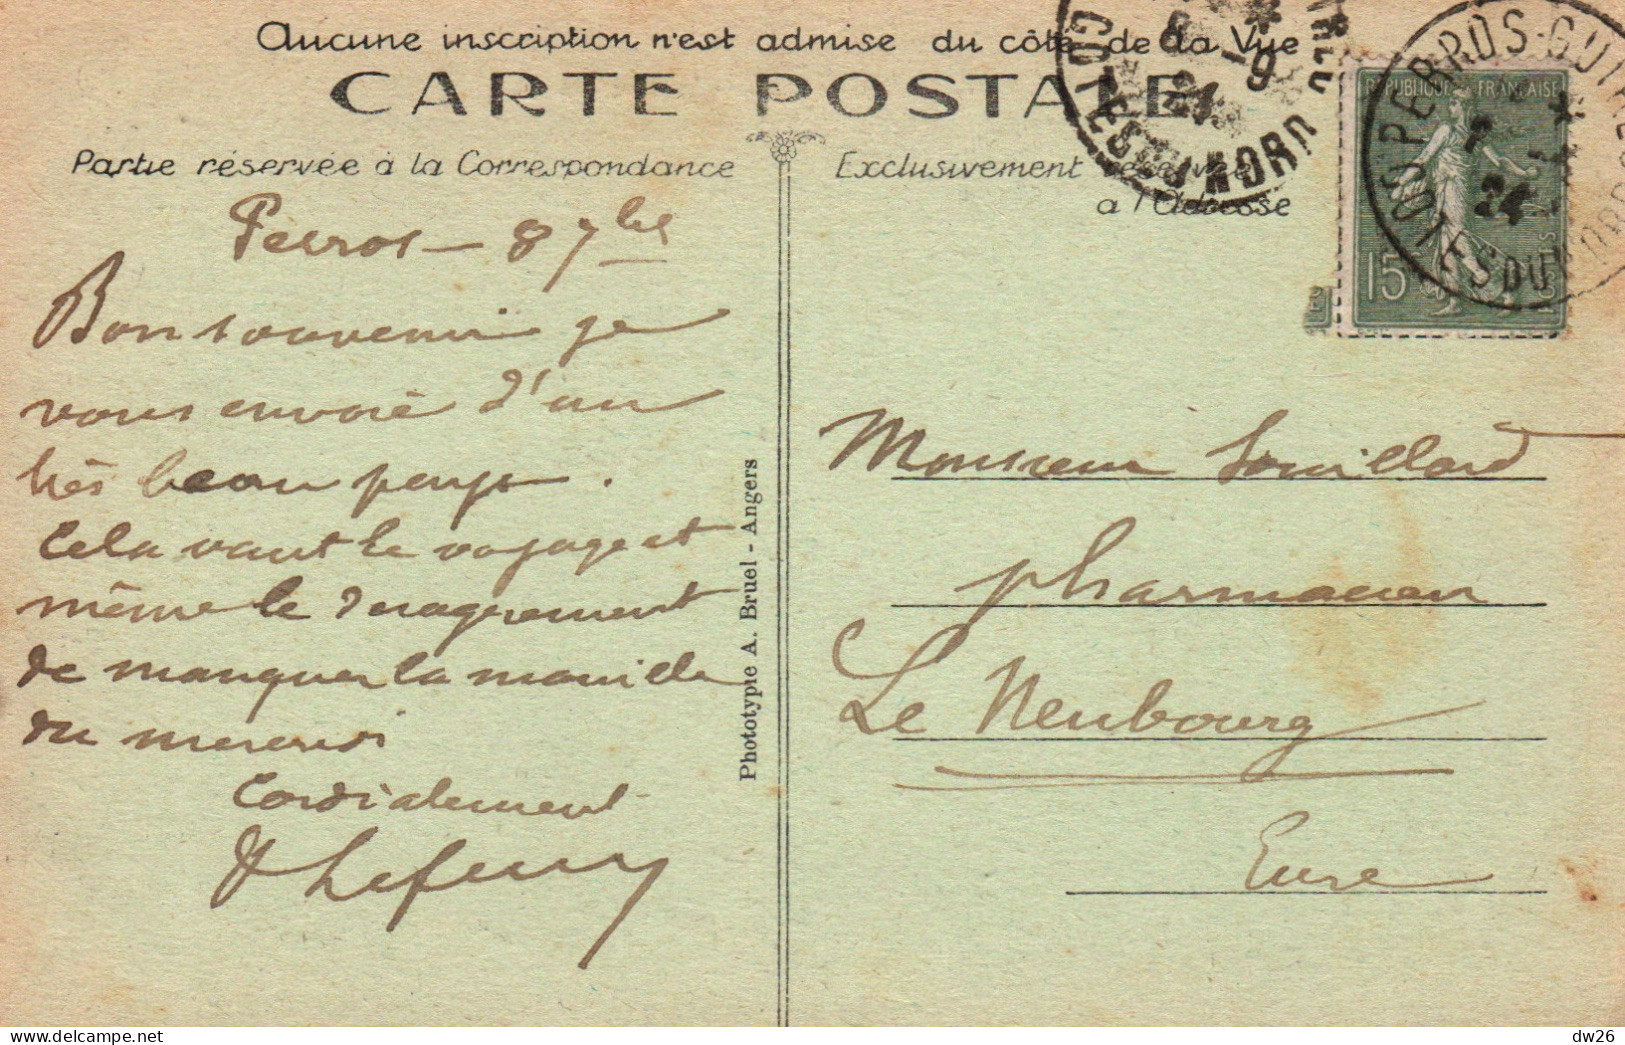 Aucune inscription n'est admise du côté de la Vue
CARTE POSTALE
Partie réservée à la Correspondance
Exclusivement réservée
a l'Adresse
PERROS-GUIREC
COTES DU NORD
24
COTES DU NORD
REPUBLIQUE FRANÇAISE
15
POSTES
Perros – 8 7bre
Bon souvenir je
vous envoie d'un
très beau pays.
Cela vaut le voyage et
même le désagrément
de manquer la manille
du mercredi
Cordialement
Monsieur Souillard
pharmacien
Le Neubourg
Eure
Phototypie A. Bruel - Angers
dw26